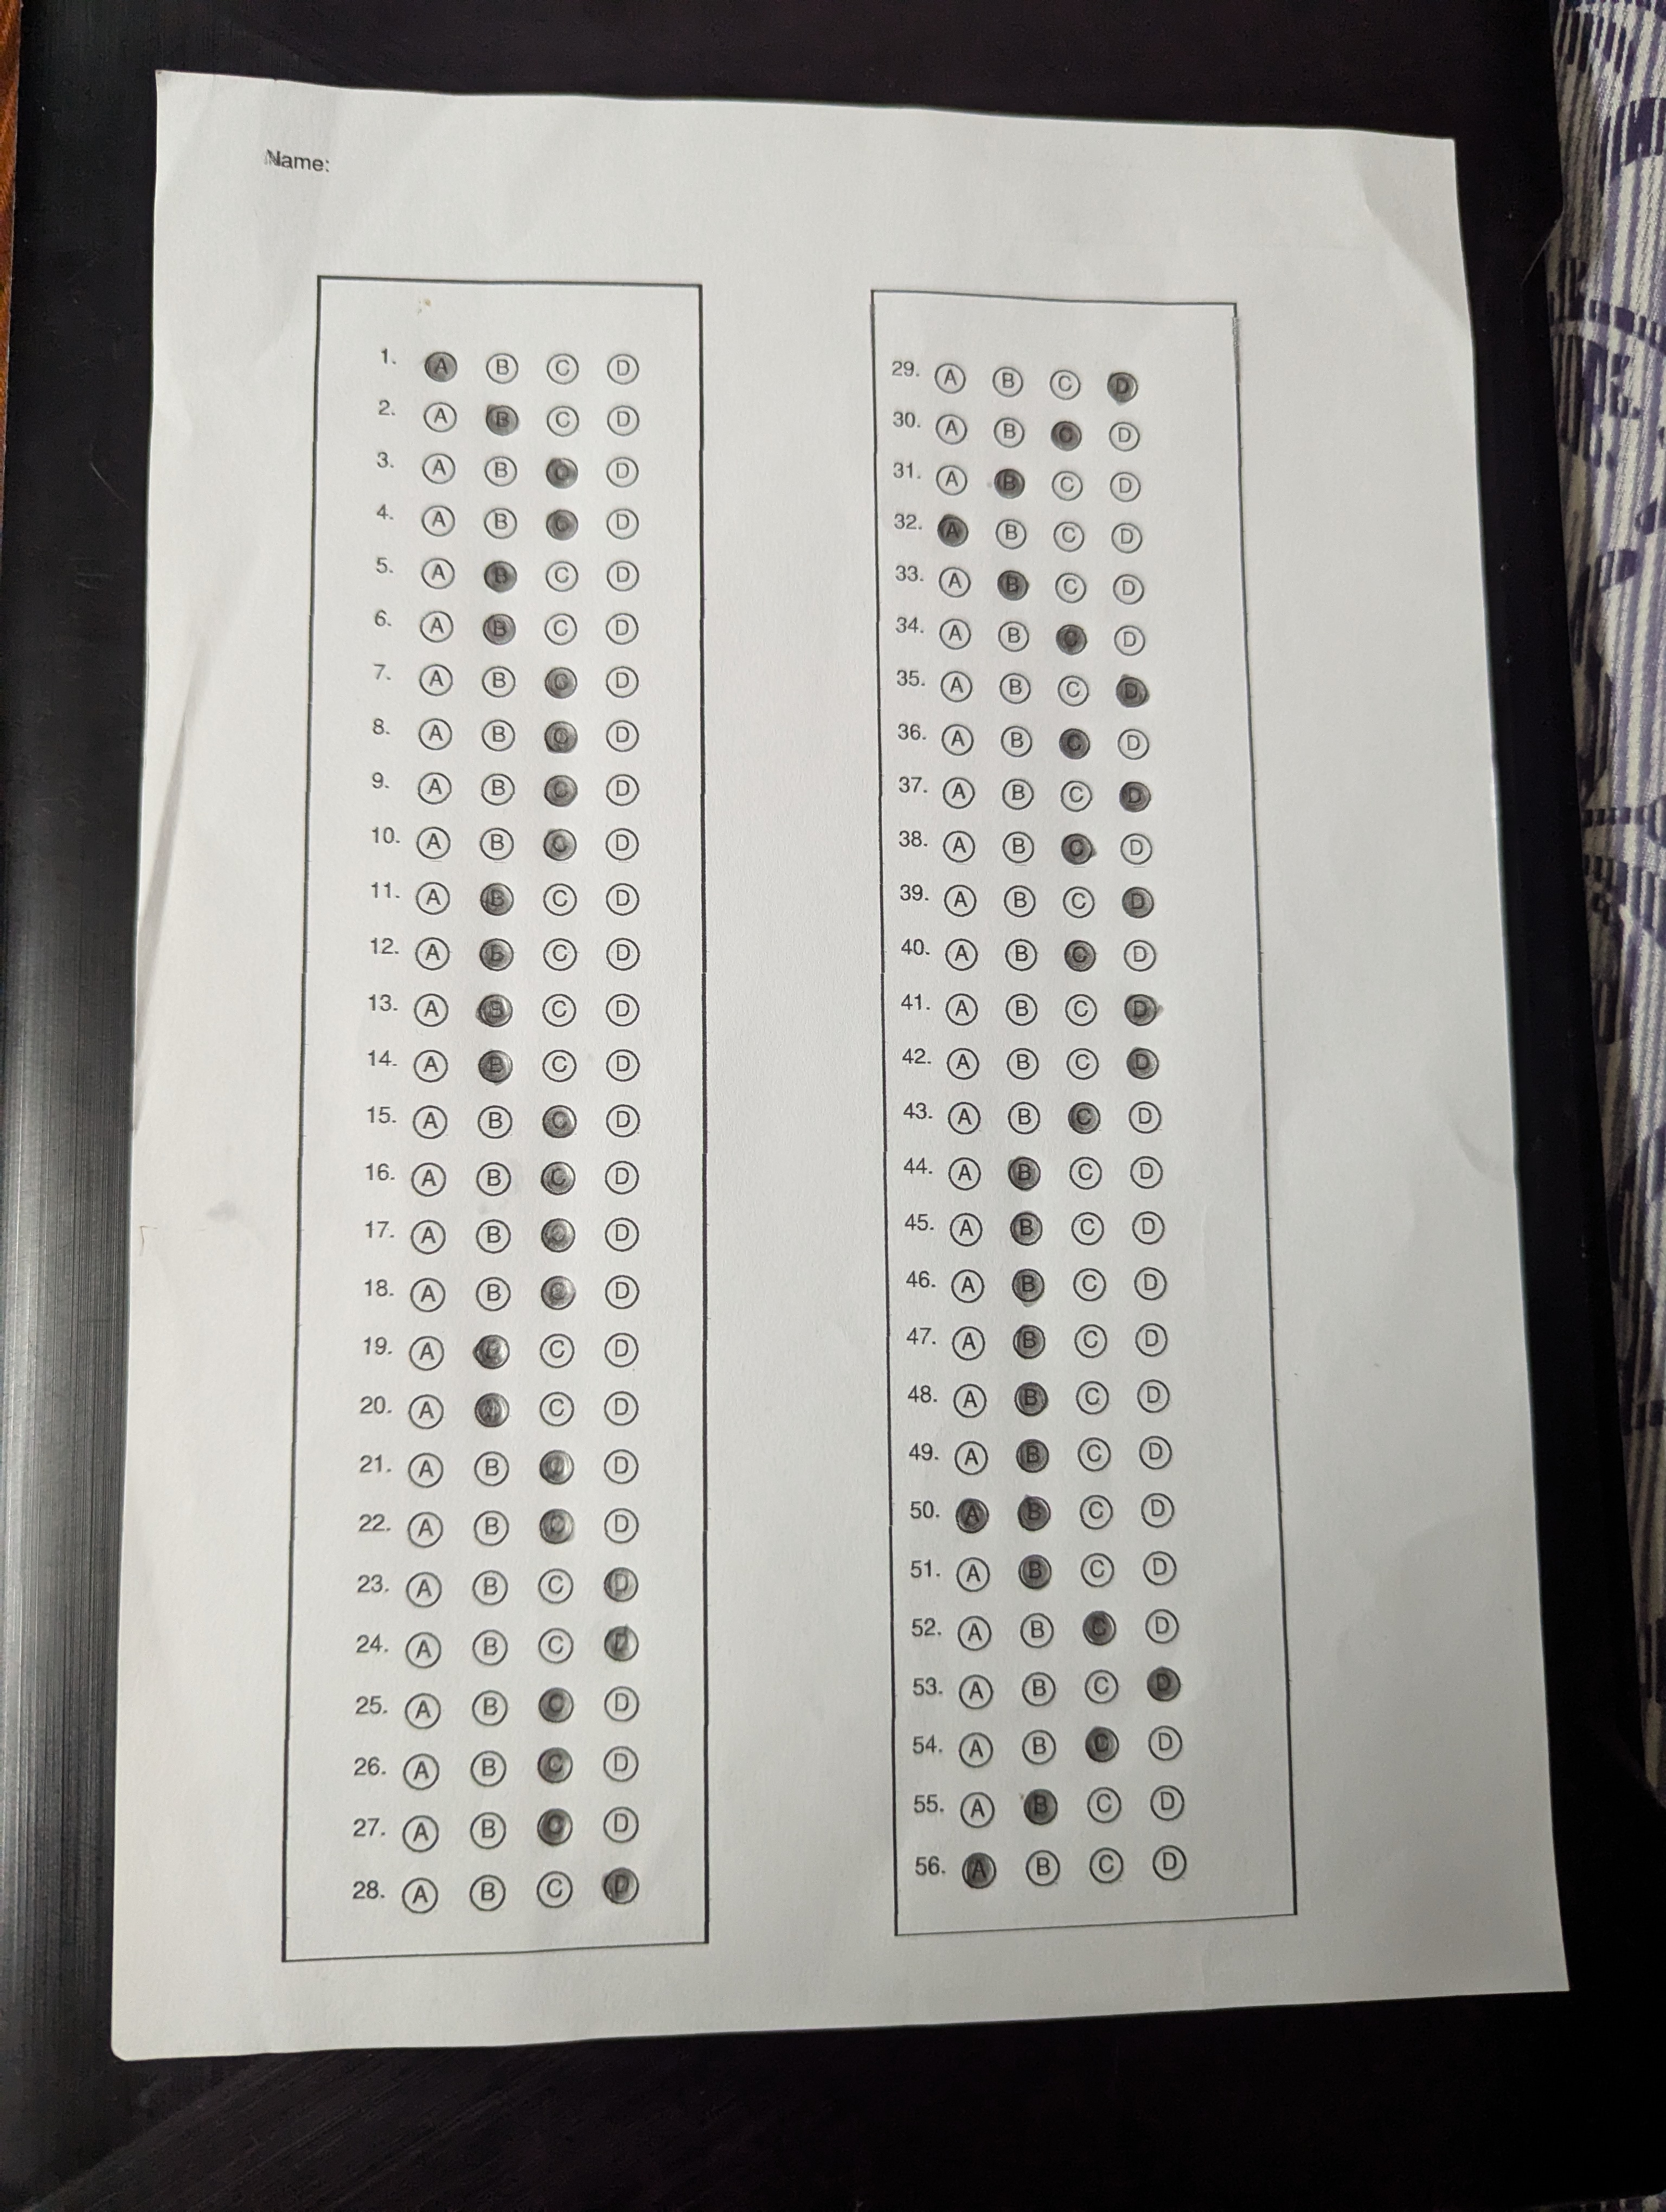 Name:
1. A B C D
2. A B C D
3. A B C D
4. A B C D
5. A B C D
6. A B C D
7. A B C D
8. A B C D
9. A B C D
10. A B C D
11. A B C D
12. A B C D
13. A B C D
14. A B C D
15. A B C D
16. A B C D
17. A B C D
18. A B C D
19. A B C D
20. A B C D
21. A B C D
22. A B C D
23. A B C D
24. A B C D
25. A B C D
26. A B C D
27. A B C D
28. A B C D
29. A B C D
30. A B C D
31. A B C D
32. A B C D
33. A B C D
34. A B C D
35. A B C D
36. A B C D
37. A B C D
38. A B C D
39. A B C D
40. A B C D
41. A B C D
42. A B C D
43. A B C D
44. A B C D
45. A B C D
46. A B C D
47. A B C D
48. A B C D
49. A B C D
50. A B C D
51. A B C D
52. A B C D
53. A B C D
54. A B C D
55. A B C D
56. A B C D